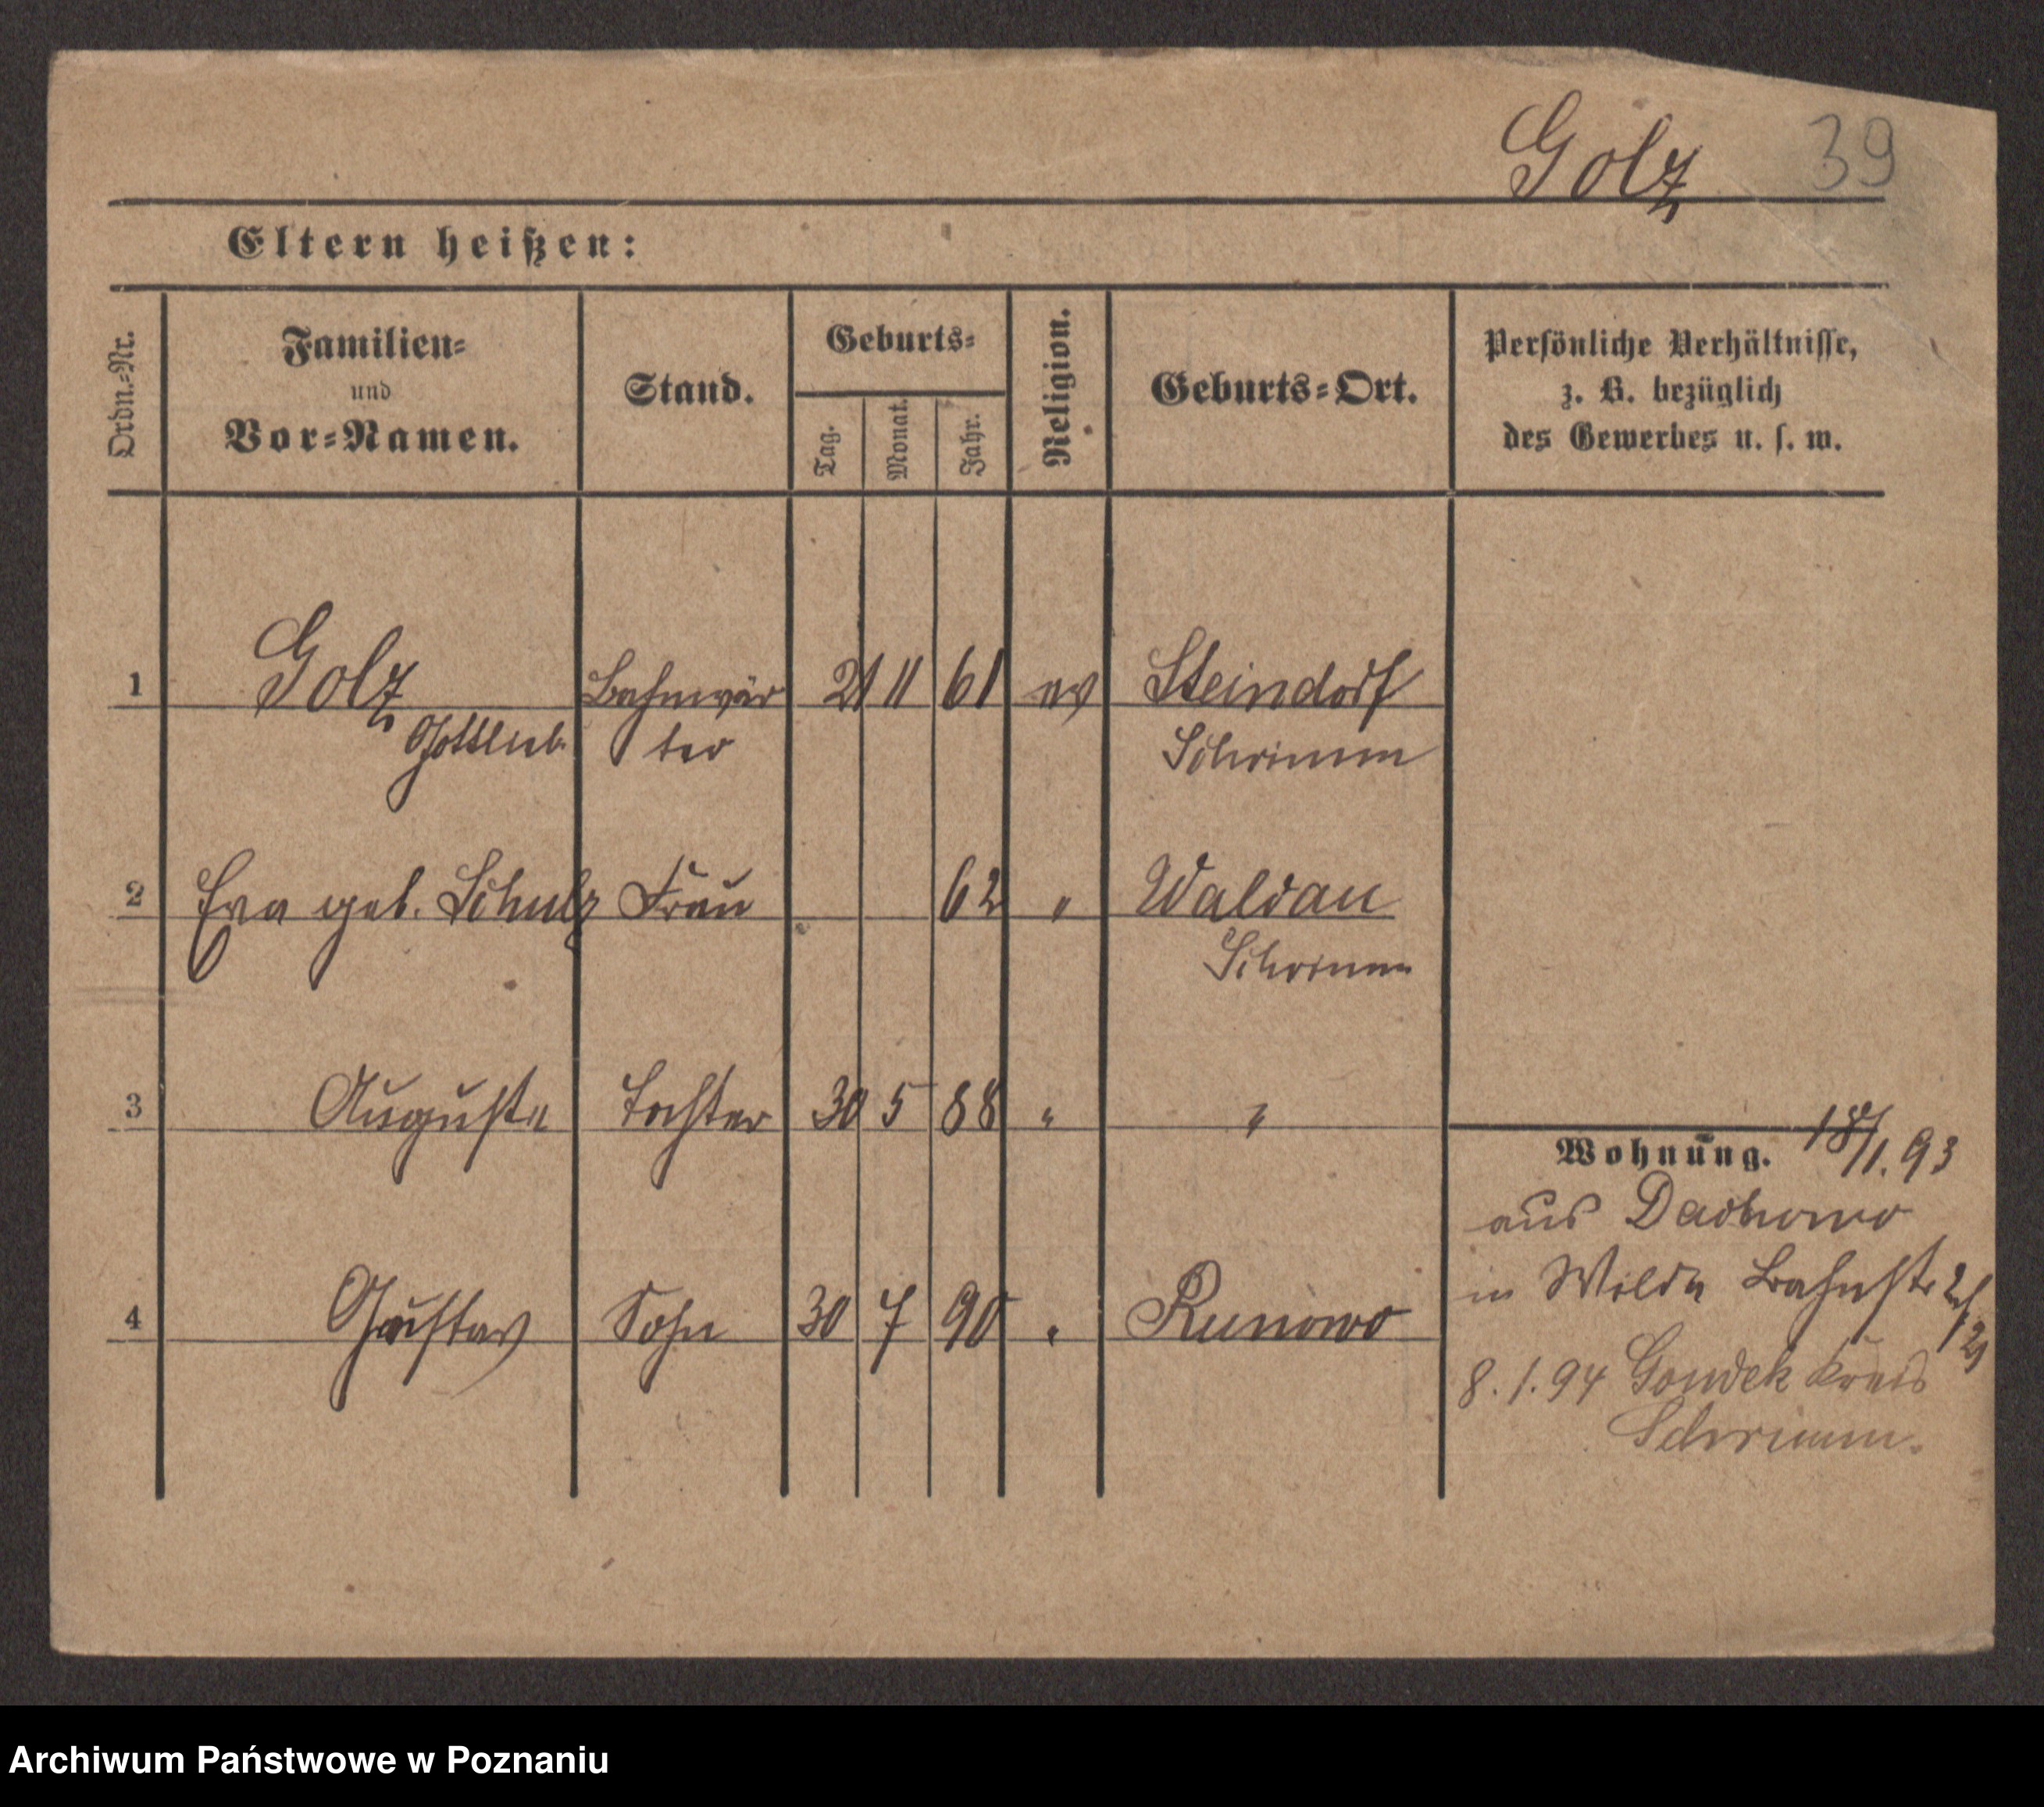 Golz 39
Eltern heißen:
Ordn.-Nr.
Familien-
und
Vor-Namen.
Stand.
Geburts-
Tag.
Monat.
Jahr.
Religion.
Geburts-Ort.
Persönliche Verhältnisse,
z. B. bezüglich
des Gewerbes u. s. w.
1 Golz Bahnwär 21 11 61 ev Steindorf
Gottlieb ter Schrimm
2 Eva geb. Schulz Frau 62 " Waldau
Schrimm
3 Auguste Tochter 30 5 88 " "
4 Gustav Sohn 30 7 90 " Runowo
Wohnung. 18/1. 93
aus Dachowo
in Wilda Bahnstr
8. 1. 94 Gondek Kreis
Schrimm.
Archiwum Państwowe w Poznaniu